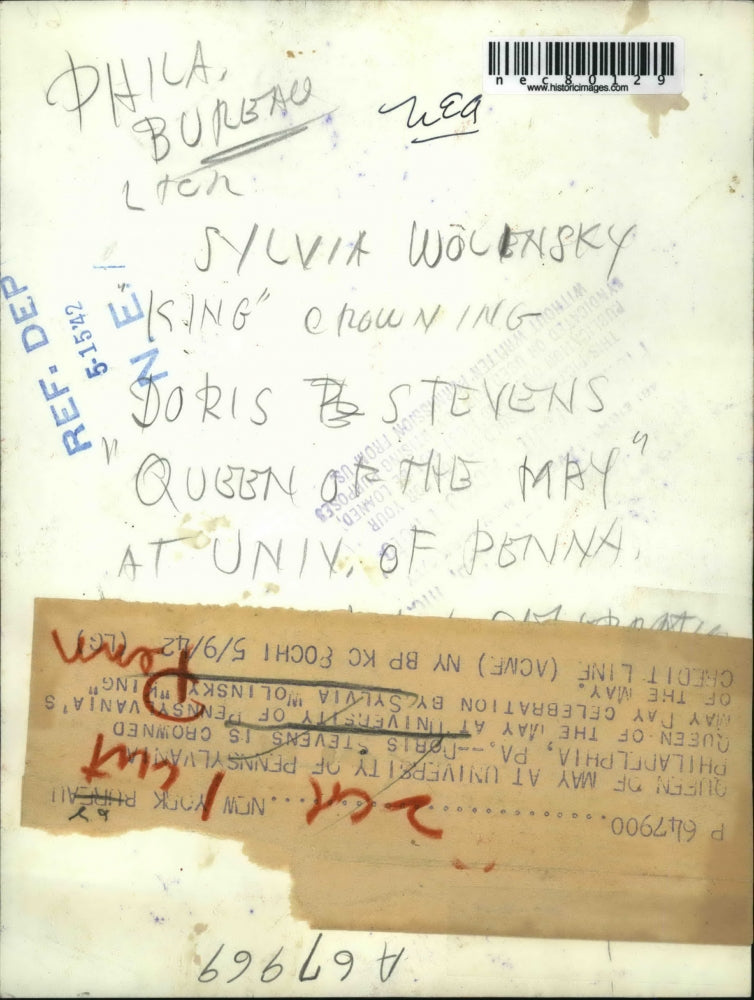 nec80129
www.historicimages.com
PHILA.
BUREAU
nea
SYLVIA WOLENSKY
"KING" CROWNING
DORIS STEVENS
"QUEEN OF THE MAY"
AT UNIV. OF PENNA.
REF. DEP
5-15'42
N.E.
P 647900..................NEW YORK BUREAU
QUEEN OF MAY AT UNIVERSITY OF PENNSYLVANIA
PHILADELPHIA, PA.--DORIS STEVENS IS CROWNED
QUEEN OF THE MAY AT UNIVERSITY OF PENNSYLVANIA'S
MAY DAY CELEBRATION BY SYLVIA WOLINSKY "KING"
OF THE MAY.
CREDIT LINE (ACME) NY BP KC EOCHI 5/9/42 (LG)
2 col
1 cut
Penn
A67969